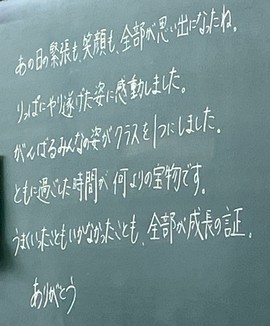 あの日の緊張も、笑顔も、全部が思い出になったね。
りっぱにやり遂げた姿に感動しました。
がんばるみんなの姿がクラスを1つにしました。
ともに過ごした時間が何よりの宝物です。
うまくいったこともいかなかったことも、全部が成長の証。
ありがとう